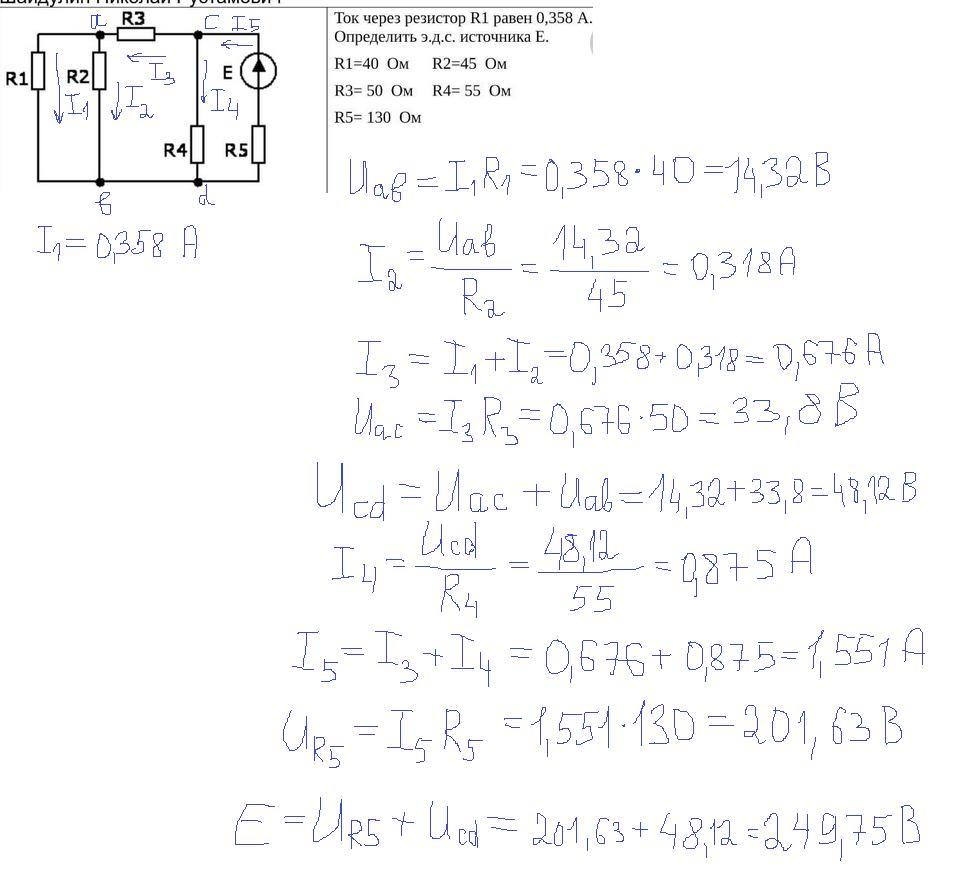 Шайдулин Николай Рустамович
Ток через резистор R1 равен 0,358 А.
Определить э.д.с. источника Е.
R1=40 Ом R2=45 Ом
R3= 50 Ом R4= 55 Ом
R5= 130 Ом
a R3 c I5
R1 R2 I3 E
I1 I2 I4
R4 R5
в d
I1 = 0,358 A
Uав = I1R1 = 0,358·40 = 14,32 В
I2 = Uав / R2 = 14,32 / 45 = 0,318 A
I3 = I1 + I2 = 0,358 + 0,318 = 0,676 A
Uac = I3 R3 = 0,676·50 = 33,8 В
Ucd = Uac + Uав = 14,32 + 33,8 = 48,12 В
I4 = Ucd / R4 = 48,12 / 55 = 0,875 A
I5 = I3 + I4 = 0,676 + 0,875 = 1,551 A
UR5 = I5 R5 = 1,551·130 = 201,63 В
E = UR5 + Ucd = 201,63 + 48,12 = 249,75 В